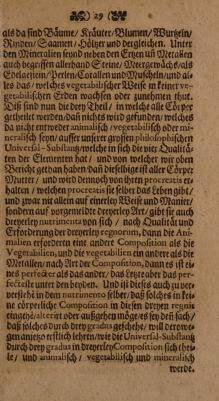 29
als da sind Bäume/ Kräuter/ Blumen/ Wurtzeln/
Rinden/ Saamen/ Höltzer und dergleichen. Unter
den Mineralien seynd neben den Ertzen uñ Metallen
auch begriffen allerhand Steine/ Meergewächs/ als
Edelgestein/ Perlen/ Corallen und Muscheln/ und al-
les das/ welches vegetabilischer Weise in seiner ve-
getabilischen Erden wachsen oder zunehmen thut.
Diß sind nun die drey Theil/ in welche alle Cörper
getheilet werden/ daß nichts wird gefunden/ welches
da nicht entweder animalisch/ vegetabilisch oder mi-
neralisch seyn/ ausser unserer grossen philosophischen
Universal-Substantz/ welche in sich die vier Qualitä-
ten der Elementen hat/ und von welcher wir oben
Bericht gethan haben/ dañ dieselbige ist aller Cörper
Mutter/ und wird dennoch von ihren procreatis er-
halten/ welchen procreatis sie selber das Leben gibt/
und zwar nit allein auf einerley Weise und Manier/
sondern auf vorgemeldte dreyerley Art/ gibt sie auch
dreyerley nutrimenta von sich/ nach Qualität und
Erforderung der dreyerley regnorum, dann die Ani-
malien erforderen eine andere Composition als die
Vegetabilien, und die vegetabilien ein andere als die
Metallen/ nach Art der Composition, dann es ist ei-
nes perfecter als das ander/ das letzte aber das per-
fecteste unter den beyden. Und ist dieses auch zu ver-
verstehẽ in dem nutrimento selber/ daß solches in kei-
ne cörperliche Composition in diesen dreyen regnis
eingehe/ alterirt oder außgehen möge/ es sey deñ sach/
daß solches durch drey gradus geschehe/ will derowe-
gen anietzo erstlich lehren/ wie die Universal-Substantz
durch drey gradus in dreyerley Composition sich thei-
le/ und animalisch/ vegetabilisch und mineralisch
werde.